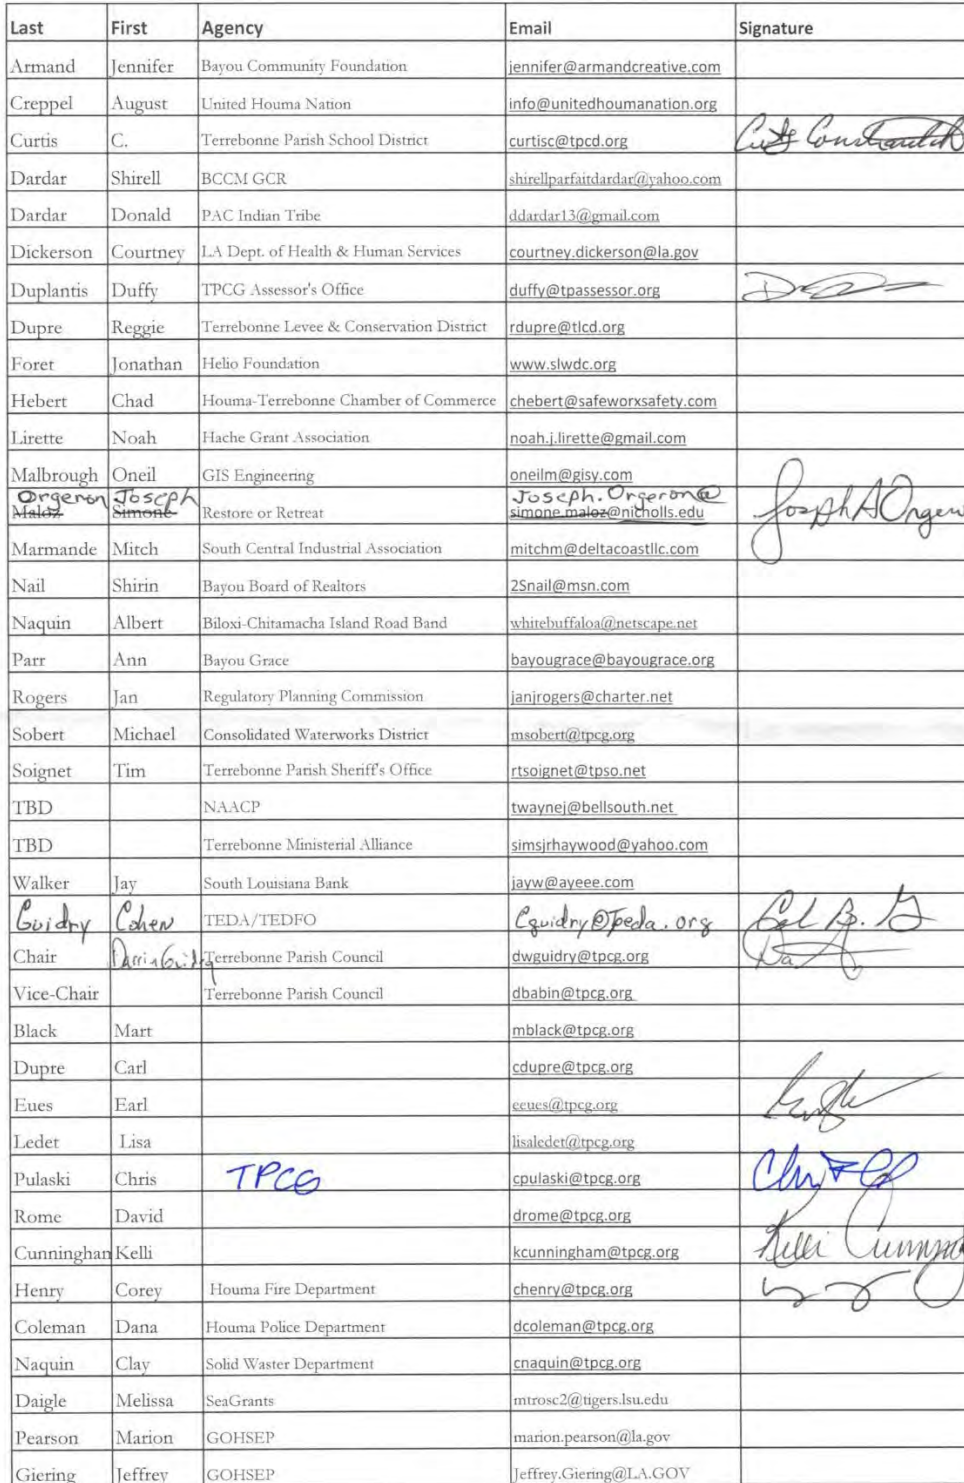 Last First Agency Email Signature
Armand Jennifer Bayou Community Foundation jennifer@armandcreative.com
Creppel August United Houma Nation info@unitedhoumanation.org
Curtis C. Terrebonne Parish School District curtisc@tpcd.org
Dardar Shirell BCCM GCR shirellparfaitdardar@yahoo.com
Dardar Donald PAC Indian Tribe ddardar13@gmail.com
Dickerson Courtney LA Dept. of Health & Human Services courtney.dickerson@la.gov
Duplantis Duffy TPCG Assessor's Office duffy@tpassessor.org
Dupre Reggie Terrebonne Levee & Conservation District rdupre@tlcd.org
Foret Jonathan Helio Foundation www.slwdc.org
Hebert Chad Houma-Terrebonne Chamber of Commerce chebert@safeworxsafety.com
Lirette Noah Hache Grant Association noah.j.lirette@gmail.com
Malbrough Oneil GIS Engineering oneilm@gisy.com
Orgeron Joseph Joseph.Orgeron@
Maloz Simone Restore or Retreat simone.maloz@nicholls.edu Joseph A Orgeron
Marmande Mitch South Central Industrial Association mitchm@deltacoastllc.com
Nail Shirin Bayou Board of Realtors 2Snail@msn.com
Naquin Albert Biloxi-Chitamacha Island Road Band whitebuffaloa@netscape.net
Parr Ann Bayou Grace bayougrace@bayougrace.org
Rogers Jan Regulatory Planning Commission janjrogers@charter.net
Sobert Michael Consolidated Waterworks District msobert@tpcg.org
Soignet Tim Terrebonne Parish Sheriff's Office rtsoignet@tpso.net
TBD NAACP twaynej@bellsouth.net
TBD Terrebonne Ministerial Alliance simsjrhaywood@yahoo.com
Walker Jay South Louisiana Bank jayw@ayeee.com
Guidry Cohen TEDA/TEDFO Cguidry@tpeda.org
Chair Darrin Guidry Terrebonne Parish Council dwguidry@tpcg.org
Vice-Chair Terrebonne Parish Council dbabin@tpcg.org
Black Mart mblack@tpcg.org
Dupre Carl cdupre@tpcg.org
Eues Earl eeues@tpcg.org
Ledet Lisa lisaledet@tpcg.org
Pulaski Chris TPCG cpulaski@tpcg.org
Rome David drome@tpcg.org
Cunninghan Kelli kcunningham@tpcg.org Kelli Cunning
Henry Corey Houma Fire Department chenry@tpcg.org
Coleman Dana Houma Police Department dcoleman@tpcg.org
Naquin Clay Solid Waster Department cnaquin@tpcg.org
Daigle Melissa SeaGrants mtrosc2@tigers.lsu.edu
Pearson Marion GOHSEP marion.pearson@la.gov
Giering Jeffrey GOHSEP Jeffrey.Giering@LA.GOV